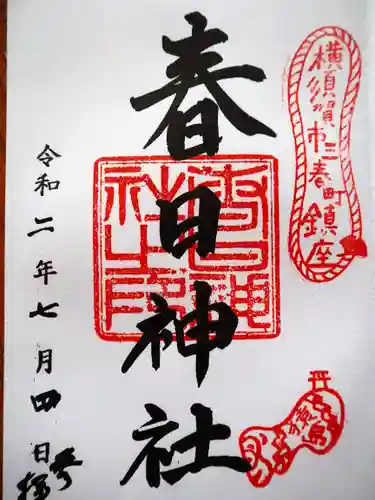 横須賀市三春町鎮座
春日神社
令和二年七月四日
参拝
猿島